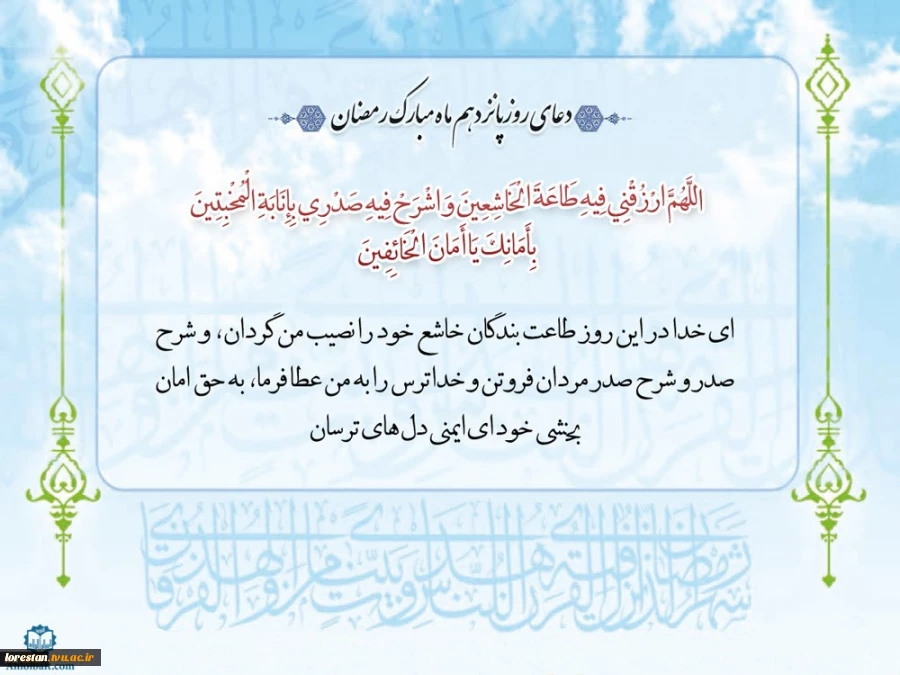 دعای روز پانزدهم ماه مبارک رمضان
اللَّهُمَّ ارْزُقْنِي فِيهِ طَاعَةَ الْخَاشِعِينَ وَ اشْرَحْ فِيهِ صَدْرِي بِإِنَابَةِ الْمُخْبِتِينَ
بِأَمَانِكَ يَا أَمَانَ الْخَائِفِينَ
ای خدا در این روز طاعت بندگان خاشع خود را نصیب من گردان، و شرح
صدر و شرح صدر مردان فروتن و خدا ترس را به من عطا فرما، به حق امان
بخشی خود ای ایمنی دل های ترسان
شهر رمضان الذی انزل فیه القرآن هدی للناس و بینت من الهدی و الفرقان
lorestan.tvu.ac.ir